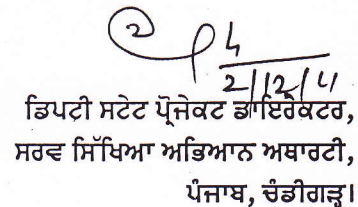 2
2/12/11
ਡਿਪਟੀ ਸਟੇਟ ਪ੍ਰੋਜੇਕਟ ਡਾਇਰੈਕਟਰ,
ਸਰਵ ਸਿੱਖਿਆ ਅਭਿਆਨ ਅਥਾਰਟੀ,
ਪੰਜਾਬ, ਚੰਡੀਗੜ੍ਹ।